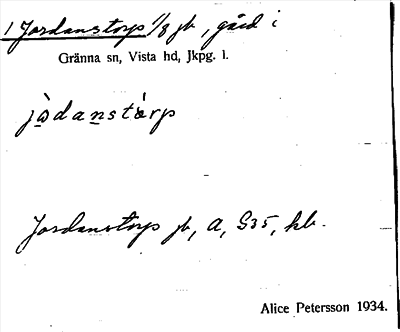 1 Jordanstorp 1/8 jb, gård i
Gränna sn, Vista hd, Jkpg. l.
jòdanstàrp
Jordanstorp jb, A, G35, kb.
Alice Petersson 1934.